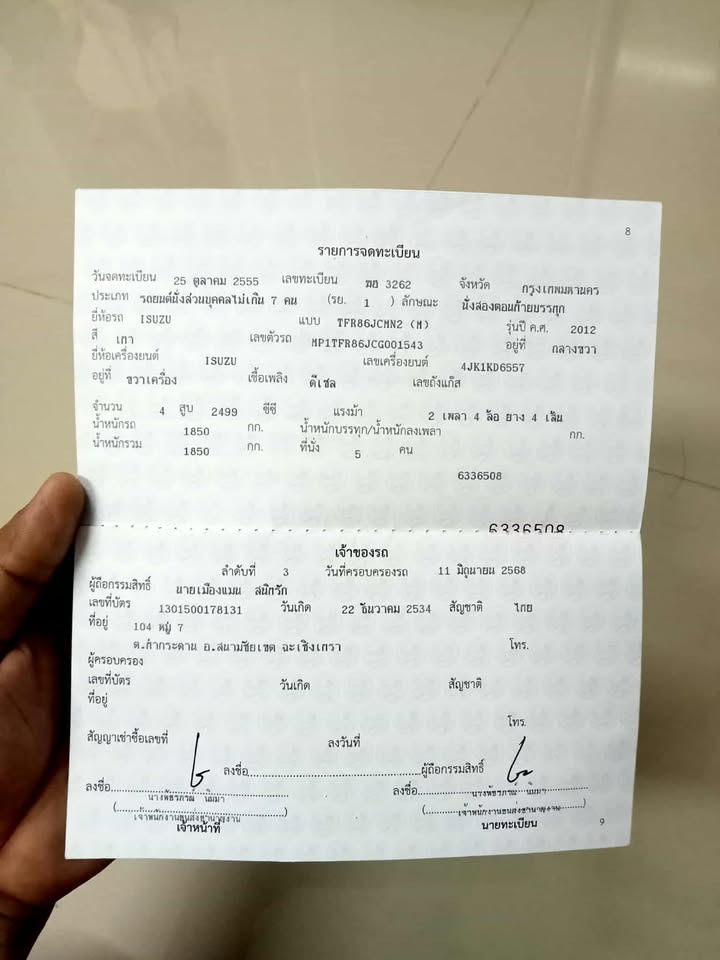 8
รายการจดทะเบียน
วันจดทะเบียน 25 ตุลาคม 2555 เลขทะเบียน 3262 จังหวัด กรุงเทพมหานคร
ประเภท รถยนต์นั่งส่วนบุคคลไม่เกิน 7 คน (รย. 1 ) ลักษณะ นั่งสองตอนท้ายบรรทุก
ยี่ห้อรถ ISUZU แบบ TFR86JCMN2 (M) รุ่นปี ค.ศ. 2012
สี เทา เลขตัวรถ MP1TFR86JCG001543 อยู่ที่ กลางขวา
ยี่ห้อเครื่องยนต์ ISUZU เลขเครื่องยนต์ 4JK1KD6557
อยู่ที่ ขวาเครื่อง เชื้อเพลิง ดีเซล เลขถังแก๊ส
จำนวน 4 สูบ 2499 ซีซี แรงม้า 2 เพลา 4 ล้อ ยาง 4 เส้น
น้ำหนักรถ 1850 กก. น้ำหนักบรรทุก/น้ำหนักลงเพลา กก.
น้ำหนักรวม 1850 กก. ที่นั่ง 5 คน
6336508
6336508
เจ้าของรถ
ลำดับที่ 3 วันที่ครอบครองรถ 11 มิถุนายน 2568
ผู้ถือกรรมสิทธิ์ นายเมืองแมน สนิทรัก
เลขที่บัตร 1301500178131 วันเกิด 22 ธันวาคม 2534 สัญชาติ ไทย
ที่อยู่ 104 หมู่ 7
ต.ท่ากระดาน อ.สนามชัยเขต ฉะเชิงเทรา โทร.
ผู้ครอบครอง
เลขที่บัตร วันเกิด สัญชาติ
ที่อยู่
โทร.
สัญญาเช่าซื้อเลขที่ ลงวันที่
ลงชื่อ ลงชื่อ ผู้ถือกรรมสิทธิ์ ลงชื่อ
นางพัชรภรณ์ นิมมา นางพัชรภรณ์ นิมมา
เจ้าพนักงานขนส่งชำนาญงาน เจ้าพนักงานขนส่งชำนาญงาน
เจ้าหน้าที่ นายทะเบียน 9